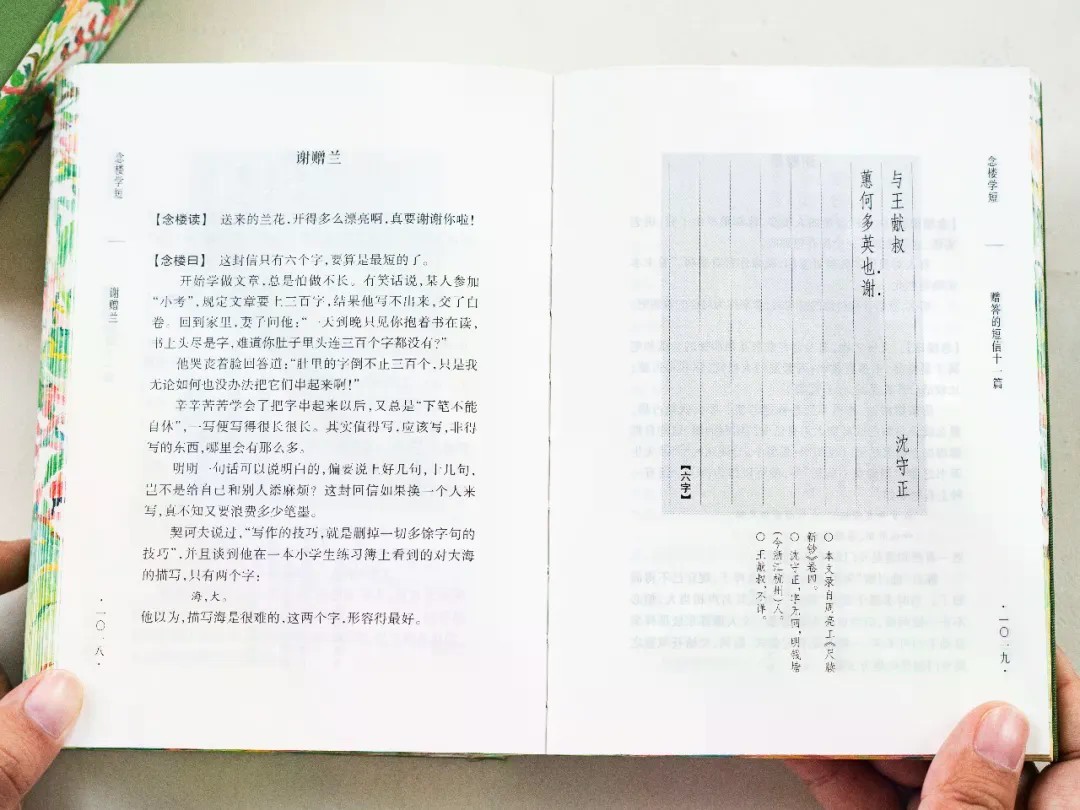 念楼学短
谢赠兰
·一〇一八·
谢赠兰
【念楼读】 送来的兰花，开得多么漂亮啊，真要谢谢你啦！
【念楼曰】 这封信只有六个字，要算是最短的了。
开始学做文章，总是怕做不长。有笑话说，某人参加
“小考”，规定文章要上三百字，结果他写不出来，交了白
卷。回到家里，妻子问他：“一天到晚只见你抱着书在读，
书上头尽是字，难道你肚子里头连三百个字都没有？”
他哭丧着脸回答道：“肚里的字倒不止三百个，只是我
无论如何也没办法把它们串起来啊！”
辛辛苦苦学会了把字串起来以后，又总是“下笔不能
自休”，一写便写得很长很长。其实值得写，应该写，非得
写的东西，哪里会有那么多。
明明一句话可以说明白的，偏要说上好几句，十几句，
岂不是给自己和别人添麻烦？这封回信如果换一个人来
写，真不知又要浪费多少笔墨。
契诃夫说过，“写作的技巧，就是删掉一切多馀字句的
技巧”，并且谈到他在一本小学生练习簿上看到的对大海
的描写，只有两个字：
海，大。
他以为，描写海是很难的，这两个字，形容得最好。
念楼学短
赠答的短信十一篇
·一〇一九·
与王献叔 沈守正
蕙何多英也.谢.
【六字】
○ 本文录自周亮工《尺牍
新钞》卷四。
○ 沈守正，字无回，明钱塘
（今浙江杭州）人。
○ 王献叔，不详。